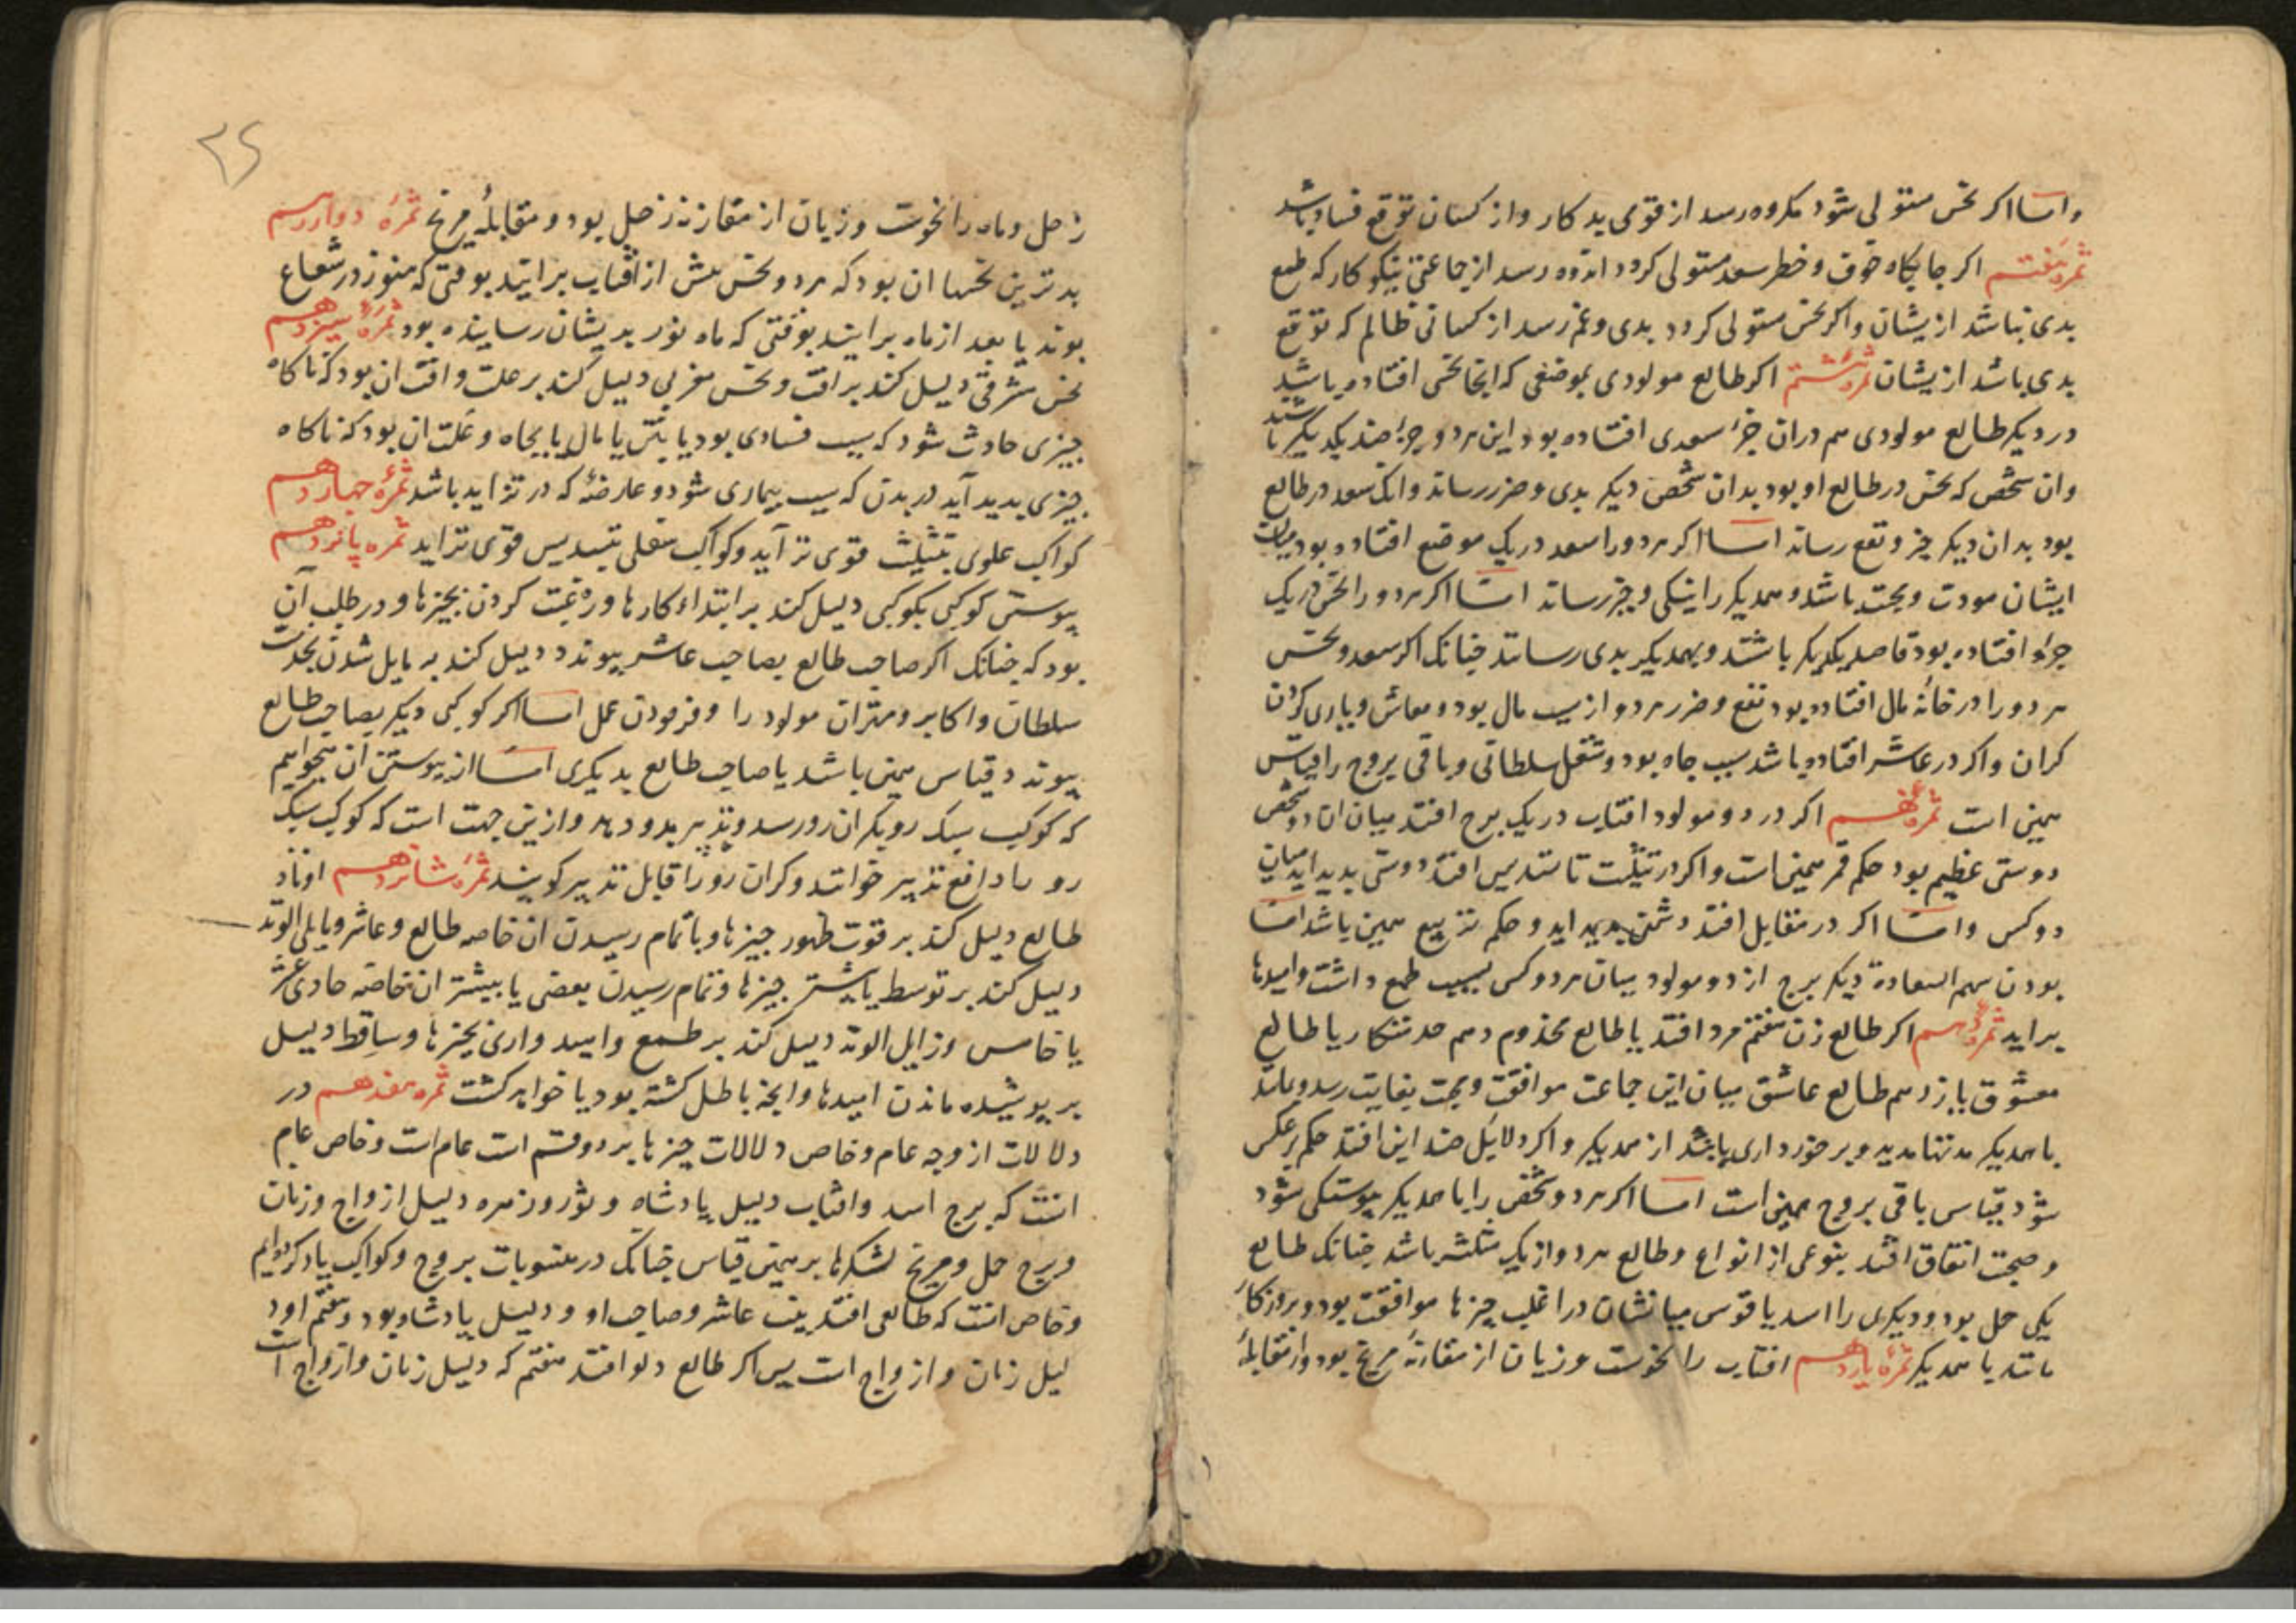 واما اکر نحس مستولی شود مکروه رسد از قوی بد کار و از کسان توقع فساد باشد
ثمره هفتم اکر جایکاه خوف و خطر سعد مستولی کردد اندوه رسد از جماعتی نیکو کار که طمع
بدی نباشد ازیشان واکر نحس مستولی کردد بدی وغم رسد از کسانی ظالم که توقع
بدی باشد ازیشان ثمره هشتم اکر طالع مولودی بموضعی که انجا نحس افتاده باشد
در دیکر طالع مولودی هم دران جزء سعدی افتاده بود این هردو جزء ضد یکدیکر باشند
وان شخص که نحس در طالع او بود بدان شخص دیکر بدی و ضرر رساند وانک سعد در طالع
بود بدان دیکر خیر و نفع رساند اما اکر هردو را سعد در یک موضع افتاده بود میان
ایشان مودت و محبت باشد و همدیکر را نیکی و خیر رساند اما اکر هردو را نحس در یک
جزء افتاده بود قاصد یکدیکر باشند و بهمدیکر بدی رسانند چنانک اکر سعد و نحس
هردو را در خانهٔ مال افتاده بود نفع و ضرر هردو از سبب مال بود و معاش و یاری کردن
کران واکر در عاشر افتاده باشد سبب جاه بود و شغل سلطانی و باقی بروج را قیاس
همین است ثمره نهم اکر در دو مولود افتاب در یک برج افتد میان ان دو شخص
دوستی عظیم بود حکم قمر همین است واکر در تثلیث تا تسدیس افتد دوستی بدید اید میان
دو کس واما اکر در مقابل افتد دشمنی بدید اید و حکم تربیع همین باشد اما
بودن سهم السعادة دیکر برج از دو مولود میان هردو کس بسبب طمع داشت وامیدها
براید ثمره دهم اکر طالع زن هفتم مرد افتد یا طالع مخدوم دهم خدمتکار یا طالع
معشوق یازدهم طالع عاشق میان این جماعت موافقت و محبت بغایت رسد و بمانند
باهمدیکر مدتها مدید و برخورداری یابند از همدیکر واکر دلایل ضد این افتد حکم برعکس
شود قیاس باقی بروج همین است اما اکر هردو شخص را با همدیکر پیوستکی شود
و صحبت اتفاق افتد بنوعی از انواع و طالع هردو از یک مثلثه باشد چنانک طالع
یکی حمل بود و دیکری را اسد یا قوس میانشان در اغلب چیزها موافقت بود و بروزکار
مانند با همدیکر ثمره یازدهم افتاب را نحوست و زیان از مقارنهٔ مریخ بود و از مقابلهٔ
زحل و ماه را نحوست و زیان از مقارنهٔ زحل بود و مقابلهٔ مریخ ثمره دوازدهم
بدترین نحسها ان بود که هردو نحس پیش از افتاب برایند بوقتی که هنوز در شعاع
بوند یا بعد از ماه برایند بوقتی که ماه نور بدیشان رساینده بود ثمره سیزدهم
نحس مشرقی دلیل کند بر افت و نحس مغربی دلیل کند بر علت وافت ان بود که ناکاه
چیزی حادث شود که سبب فسادی بود یا بتن یا بمال یا بجاه و علت ان بود که ناکاه
چیزی بدید آید در بدن که سبب بیماری شود و عارضهٔ که در تزاید باشد ثمره چهاردهم
کواکب علوی بتثلیث قوی تر آید و کواکب سفلی بتسدیس قوی تر اید ثمره پانزدهم
پیوستن کوکبی بکوکبی دلیل کند بر ابتداء کارها و رغبت کردن بچیزها و در طلب آن
بود که چنانک اکر صاحب طالع بصاحب عاشر پیوندد دلیل کند به مایل شدن بخدمت
سلطان و اکابر و مهتران مولود را و فرمودن عمل اما اکر کوکبی دیکر بصاحب طالع
پیوندد قیاس همین باشد یا صاحب طالع بدیکری اما از پیوستن ان میخواهیم
که کوکب سبک رو بکران رو رسد و تدبیر بدو دهد و ازین جهت است که کوکب سبک
رو را دافع تدبیر خوانند و کران رو را قابل تدبیر کویند ثمره شانزدهم اوتاد
طالع دلیل کند بر قوت ظهور چیزها و باتمام رسیدن ان خاصه طالع و عاشر و مایلی الوتد
دلیل کند بر توسط یا بیشتر چیزها و تمام رسیدن بعضی یا بیشتر ان خاصه حادی عشر
یا خامس و زایل الوتد دلیل کند بر طمع وامید وارئ بچیزها و ساقط دلیل
بر پوشیده ماندن امیدها وانچه باطل کشته بود یا خواهد کشت ثمره هفدهم در
دلالات از وجه عام و خاص دلالات چیزها بر دو قسم است عام است و خاص عام
انست که برج اسد وافتاب دلیل پادشاه و ثور و زهره دلیل ازواج و زنان
و برج حمل و مریخ لشکرها بر همین قیاس چنانک در منسوبات بروج و کواکب یاد کرده ایم
و خاص انست که طالعی افتد بیت عاشر و صاحب او دلیل پادشاه بود و هفتم او د
لیل زنان و ازواج است پس اکر طالع دلو افتد هفتم که دلیل زنان و ازواج است